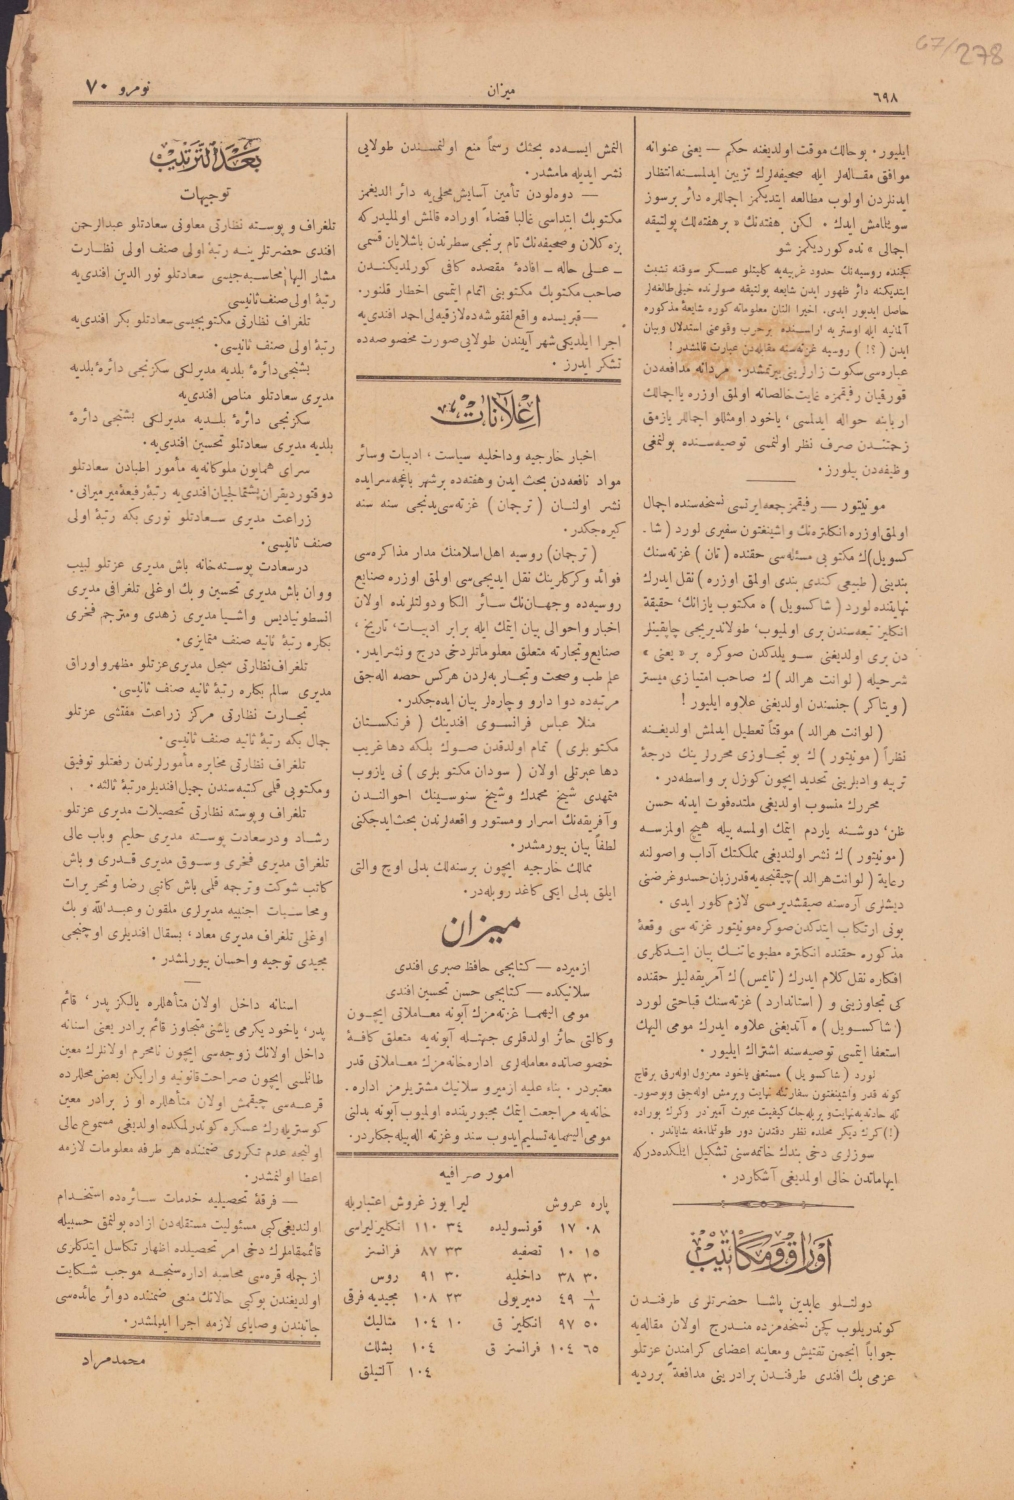 67/278
٦٩٨
میزان
نومرو ٧٠
ایلیور. بوحالك موقت اولدیغنه حكم — یعنی عنوانه
موافق مقاله‌لر ایله صحیفه‌لرك تزیین ایدلمسنه انتظار
ایدنلردن اولوب مطالعه ایتدیكمز اجمالره دائر برسوز
سویلمامش ایدك. لكن هفته‌نك « برهفته‌لك پولتیقه
اجمالی » نده كوردیكمز شو
كچنده روسیه‌نك حدود غربیه‌یه كلیتلو عسكر سوقنه تشبث
ایتدیكنه دائر ظهور ایدن شایعه پولتیقه صولرنده خیلی طالغه‌لر
حاصل ایدیور ایدی. اخیرا النان معلوماته كوره شایعهٔ مذكوره
آلمانیه ایله اوستریا اراسنده برحرب وقوعنی استدلال وبیان
ایدن (؟!) روسیه غزته‌سنه مقابله‌دن عبارت قالمشدر!
عباره‌سی سكوت زارلرینی ییرتمشدر. مردانه مدافعه‌دن
قورقیان رفیقمزه غایت خالصانه اولمق اوزره یااجمالك
اربابنه حواله ایدلمسی، یاخود اومثللو اجمالر یازمق
زحمتندن صرف نظر اولنمسی توصیه‌سنده بولنمغی
وظیفه‌دن بیلورز.
مونیتور — رفیقمز جمعه ایرتسی نسخه‌سنده اجمال
اولمق اوزره انكلتره‌نك واشینغتون سفیری لورد (شا-
كسویل)ك مكتوبی مسئله‌سی حقنده (تان) غزته‌سنك
بندینی (طبیعی كندی بندی اولمق اوزره) نقل ایدرك
نهایتنده لورد (شاكسویل) ه مكتوب یازانك، حقیقة
انكلیز تبعه‌سندن بری اولمیوب، طولاندیریجی چاپقینلر
دن بری اولدیغنی سویلدكدن صوكره بر « یعنی »
شرحیله (لوانت هرالد) ك صاحب امتیازی میستر
(ویتاكر) جنسندن اولدیغنی علاوه ایلیور!
(لوانت هرالد) موقتاً تعطیل ایدلمش اولدیغنه
نظراً (مونیتور) ك بو تجاوزی محررلرینك درجهٔ
تربیه وادبلرینی تحدید ایچون كوزل بر واسطه‌در.
محررك منسوب اولدیغی ملتده فوت ایدنه حسن
ظن، دوشنه یاردم ایتمك اولمسه بیله هیچ اولمزسه
(مونیتور) ك نشر اولندیغی مملكتك آداب واصولنه
رعایة (لوانت هرالد) چیقنجه‌یه قدر زبان حسد وغرضنی
دیشلری آره‌سنه صیقشدیرمسی لازم كلور ایدی.
بونی ارتكاب ایتدكدن صوكره مونیتور غزته سی وقعهٔ
مذكوره حقنده انكلتره مطبوعاتنك بیان ایتدكلری
افكاره نقل كلام ایدرك (تایمس) ك آمریقه‌لیلر حقنده
كی تجاوزینی و (استاندارد) غزته‌سنك قباحتی لورد
(شاكسویل) ه آتدیغنی علاوه ایدرك مومی الیهك
استعفا ایتمسی توصیه‌سنه اشتراك ایلیور.
لورد (شاكسویل) مستعفی یاخود معزول اوله‌رق برقاچ
كونه قدر واشینغتون سفارتنه نهایت ویرمش اوله‌جق وبوصور-
تله حادثه به نهایت ویریله‌جك كیفیت عبرت آمیز در وكرك بوراده
(!) كرك دیكر محلده نظر دقتدن دور طوتلمامغه شایاندر.
سوزلری دخی بندك خاتمه‌سنی تشكیل ائلكده‌دركه
ایهاماتدن خالی اولمدیغی آشكاردر.
أوراق ومكاتیب
دولتلو عابدین پاشا حضرتلری طرفندن
كوندریلوب كچن نسخه‌مزده مندرج اولان مقاله‌یه
جواباً انجمن تفتیش ومعاینه اعضای كرامندن عزتلو
عزمی بك افندی طرفندن برادرینی مدافعةً بررديه
النمش ایسه‌ده بحثك رسماً منع اولنمسندن طولایی
نشر ایدیله‌مامشدر.
— دوه‌لودن تأمین آسایش محلی‌یه دائر الدیغمز
مكتوبك ابتداسی غالبا قضاءً اوراده قالمش اولملیدركه
بزه كلان وصحیفه‌نك تام برنجی سطرندن باشلایان قسمی
ـ علی حاله ـ افادهٔ مقصده كافی كورلمدیكندن
صاحب مكتوبك مكتوبنی اتمام ایتمسی اخطار قلنور.
— قبریسده واقع لفقوشه‌ده لازقیه‌لی احمد افندی‌یه
اجرا ایلدیكی شهر آییندن طولایی صورت مخصوصه‌ده
تشكر ایدرز.
اعلانات
اخبار خارجیه وداخلیه سیاست، ادبیات وسائر
مواد نافعه‌دن بحث ایدن وهفته‌ده برشهر باغچه‌سرایده
نشر اولنان (ترجمان) غزته‌سی یدنجی سنه سنه
كیره‌جكدر.
(ترجمان) روسیه اهل اسلامنك مدار مذاكره‌سی
فوائد وكركلرینك نقل ایدیجی‌سی اولمق اوزره صنایع
روسیه‌ده وجهان‌نك سائر الكا ودولتلرنده اولان
اخبار واحوالی بیان ایتمك ایله برابر ادبیات، تاریخ،
صنایع وتجارته متعلق معلوماتلر دخی درج ونشر ایدر.
علم طب وصحت وتجاربه‌لردن هركس حصه اله‌جق
مرتبه‌ده دوا دارو وچاره‌لر بیان ایده‌جكدر.
منلا عباس فرانسوی افندینك (فرنكستان
مكتوبلری) تمام اولدقدن صوك بلكه دها غریب
دها عبرتلی اولان (سودان مكتوبلری) نی یازوب
متمهدی شیخ محمدك وشیخ سنوسینك احوالندن
وآفریقه‌نك اسرار ومستور واقعه‌لرندن بحث ایدجكنی
لطفاً بیان بیورمشدر.
ممالك خارجیه ایچون برسنه‌لك بدلی اوچ والتی
ایلق بدلی ایكی كاغد روبله‌در.
میزان
ازمیرده — كتابجی حافظ صبری افندی
سلانیكده — كتابجی حسن تحسین افندی
مومی الیهما غزته‌مزك آبونه معاملاتی ایچون
وكالتی حائز اولدقلری جهتله آبونه‌یه متعلق كافهٔ
خصوصاتده معامله‌لری اداره‌خانه‌مزك معاملاتی قدر
معتبردر. بناء علیه ازمیر و سلانیك مشتریلرمز اداره-
خانه‌یه مراجعت ایتمك مجبوریتنده اولمیوب آبونه بدلنی
مومی الیهمایه تسلیم ایدوب سند وغزته اله‌بیله‌جكلردر.
امور صرافیه
پاره غروش
لیرا یوز غروش اعتباریله
٠٨ ١٧ قونسولیده
٣٤ ١١٠ انكلیز لیراسی
١٥ ١٠ تصفیه
٣٣ ٨٧ فرانسز
٣٠ ٣٨ داخلیه
٣٠ ٩١ روس
١/٨ ٤٩ دمیریولی
٢٣ ١٠٨ مجیدیه فرقی
٥٠ ٩٧ انكلیز ق
١٠ ١٠٤ متالیك
٦٥ ١٠٤ فرانسز ق
١٠٤ بشلك
١٠٤ آلتیلق
بعد الترتیب
توجیهات
تلغراف و پوسته نظارتی معاونی سعادتلو عبدالرحمن
افندی حضرتلرینه رتبهٔ اولی صنف اولی نظارت
مشار الیها محاسبه‌جیسی سعادتلو نور الدین افندی‌یه
رتبهٔ اولی صنف ثانیسی
تلغراف نظارتی مكتوبجیسی سعادتلو بكر افندی‌یه
رتبهٔ اولی صنف ثانیسی.
بشنجی دائرهٔ بلدیه مدیرلكی سكزنجی دائرهٔ بلدیه
مدیری سعادتلو مناص افندی‌یه
سكزنجی دائرهٔ بلدیه مدیرلكی بشنجی دائرهٔ
بلدیه مدیری سعادتلو تحسین افندی‌یه.
سرای همایون ملوكانه‌یه مأمور اطبادن سعادتلو
دوقتور دیقران پشتمالجیان افندی‌یه رتبهٔ رفیعهٔ میرمیرانی.
زراعت مدیری سعادتلو نوری بكه رتبهٔ اولی
صنف ثانیسی.
درسعادت پوسته‌خانه باش مدیری عزتلو لبیب
ووان باش مدیری تحسین و بك اوغلی تلغرافی مدیری
انسطونیادیس واشیا مدیری زهدی ومترجم فخری
بكلره رتبهٔ ثانیه صنف متمایزی.
تلغراف نظارتی سجل مدیری عزتلو مظهر واوراق
مدیری سالم بكلره رتبهٔ ثانیه صنف ثانیسی.
تجارت نظارتی مركز زراعت مفتشی عزتلو
جمال بكه رتبهٔ ثانیه صنف ثانیسی.
تلغراف نظارتی مخابره مأمورلرندن رفعتلو توفیق
ومكتوبی قلمی كتبه سندن جمیل افندیلره رتبهٔ ثالثه.
تلغراف و پوسته نظارتی تحصیلات مدیری عزتلو
رشاد ودرسعادت پوسته مدیری حلیم وباب عالی
تلغراق مدیری فخری وسوق مدیری قدری و باش
كاتب شوكت وترجمه قلمی باش كاتبی رضا وتحریرات
ومحاسبات اجنبیه مدیرلری ملقون وعبدالله و بك
اوغلی تلغراف مدیری معاد، بسقال افندیلری اوچنجی
مجیدی توجیه واحسان بیورلمشدر.
اسنانه داخل اولان متأهللره یالكز پدر، قائم
پدر، یاخود یكرمی یاشنی متجاوز قائم برادر یعنی اسنانه
داخل اولانك زوجه‌سی ایچون نامحرم اولانلرك معین
طانلمسی ایچون صراحت قانونیه وارایكن بعض محللرده
قرعه‌سی چیقمش اولان متأهللره اوز برادر معین
كوستریله‌رك عسكره كوندرلمكده اولدیغی مسموع عالی
اولنجه عدم تكرری ضمننده هر طرفه معلومات لازمه
اعطا اولنمشدر.
— فرقهٔ تحصیلیه خدمات سائره‌ده استخدام
اولندیغی كبی مسئولیت مستقله‌دن ازاده بولنمق حسبیله
قائممقاملرك دخی امر تحصیلده اظهار تكاسل ایتدكلری
از جمله قره‌سی محاسبه اداره سنجه موجب شكایت
اولدیغندن بوكبی حالاتك منعی ضمننده دوائر عائده‌سی
جانبندن وصایای لازمه اجرا ایدلمشدر.
محمد مراد